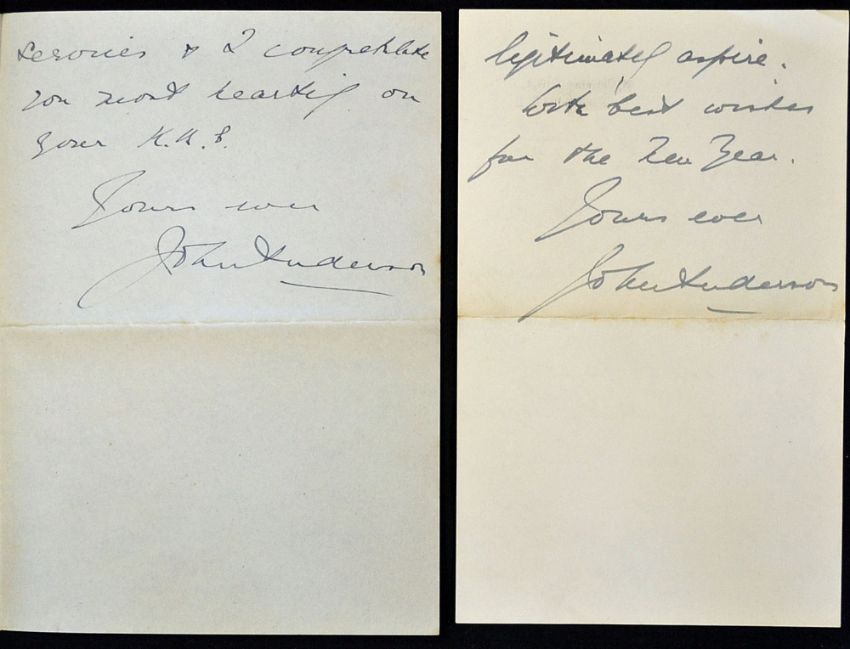 services & I congratulate
you most heartily on
your K.C.B.
Yours ever
John Anderson
legitimately aspire.
With best wishes
for the New Year.
Yours ever
John Anderson